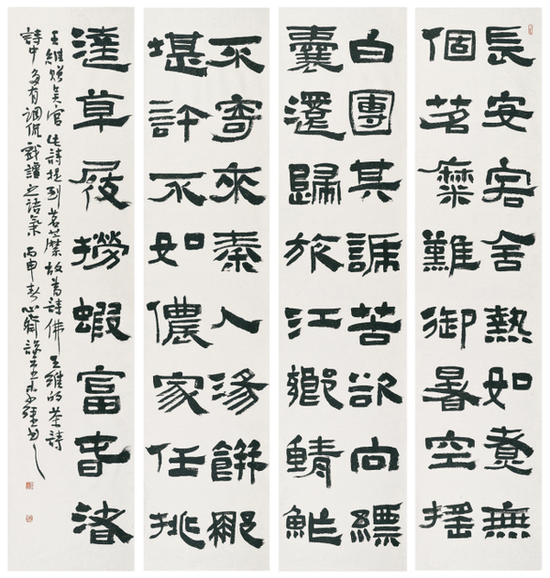 長安客舍熱如煮無
個茗糜難御暑空搖
白團其諦苦欲向縹
囊還歸旅江鄉鯖鮓
不寄來秦人湯餅那
堪許不如儂家任挑
達草屐撈蝦富春渚
王維贈吳官此詩提到茗糜故為詩佛王維的茶詩
詩中多有調侃戲謔之語氣丙申春心齋